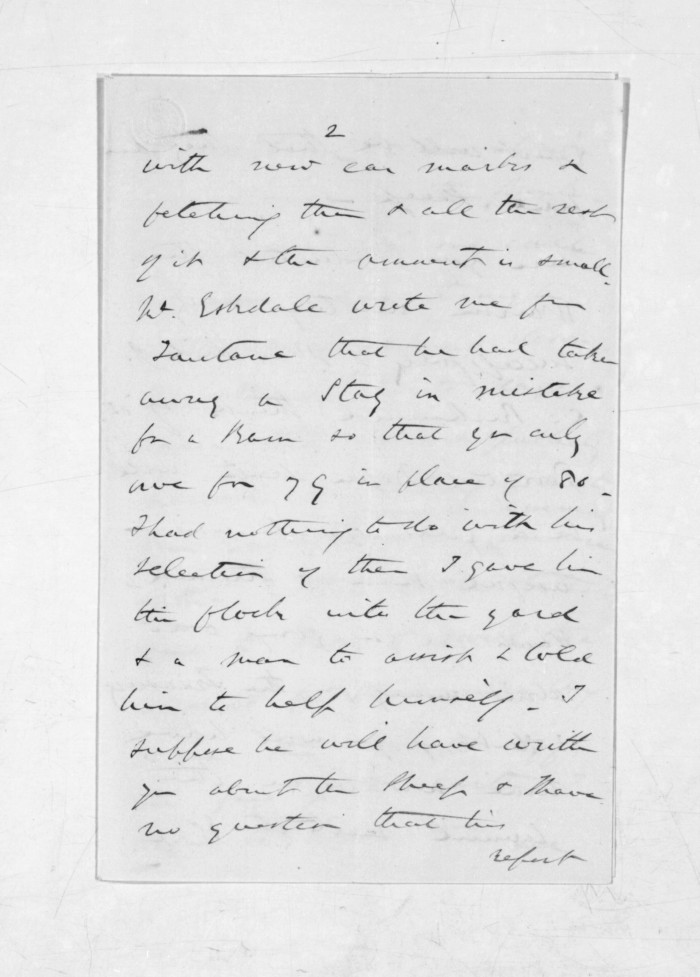 2
with new ear marks &
fetching them & all the rest
of it & the amount is small.
Mr. Eskdale wrote me from
Tautane that he had taken
away a Stag in mistake
for a Ram so that you only
owe for 79 in place of 80 -
I had nothing to do with his
selection of them I gave him
the flock into the yard
& a man to assist & told
him to help himself - I
suppose he will have written
you about the Sheep & I have
no question that his
report